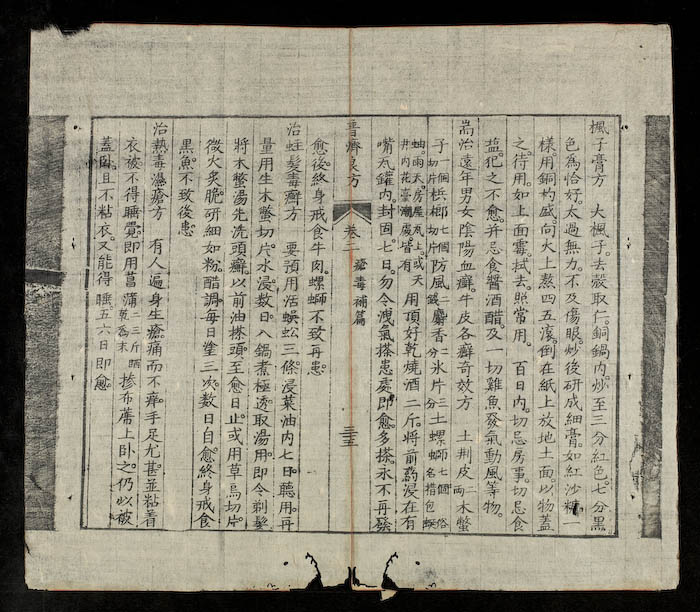 楓子膏方　大楓子。去殼取仁。銅鍋內。炒至三分紅色。七分黑
色為恰好。太過無力。不及傷眼。炒後研成細膏。如紅沙糖一
樣。用銅杓盛。向火上熬四五滾。倒在紙上。放地土面。以物蓋
之。待用。如上面霉。拭去。照常用。百日內。切忌房事。切忌食
鹽。犯之不愈。并忌食醬酒醋。及一切雞魚發氣動風等物。
耑治遠年男女陰陽血癬。牛皮各癬奇效方　土荊皮二兩木鱉
子七個切片梹榔七個切片防風麝香二分氷片三分土螺螄七個俗名揩包
蚰。雨天。房屋瓦上。或天井內。花臺潮處皆有用頂好乾燒酒二斤。將前葯浸在有
嘴瓦罐內。封固七日。勿令洩氣。搽患處即愈。多搽。永不再發
普濟良方　卷二　瘡毒補篇　三五
愈後。終身戒食牛肉。螺螄。不致再患。
治蛀髮毒癬方　要預用活蜈蚣三條。浸菜油內七日。聽用。再
量用生木鱉切片。水浸數日。入鍋煮極透。取湯用。即令剃髮
將木鱉湯先洗頭癬。以前油搽頭。至愈日止。或用草烏切片。
微火炙脆。研細如粉。醋調。每日塗三次。數日自愈。終身戒食
黑魚。不致後患。
治熱毒濕瘡方　有人遍身生瘡。痛而不癢。手足尤甚。並粘著
衣被。不得睡覺。即用菖蒲二三斤晒乾為末摻布蓆上臥之。仍以被
蓋臥。且不粘衣。又能得睡。五六日即愈